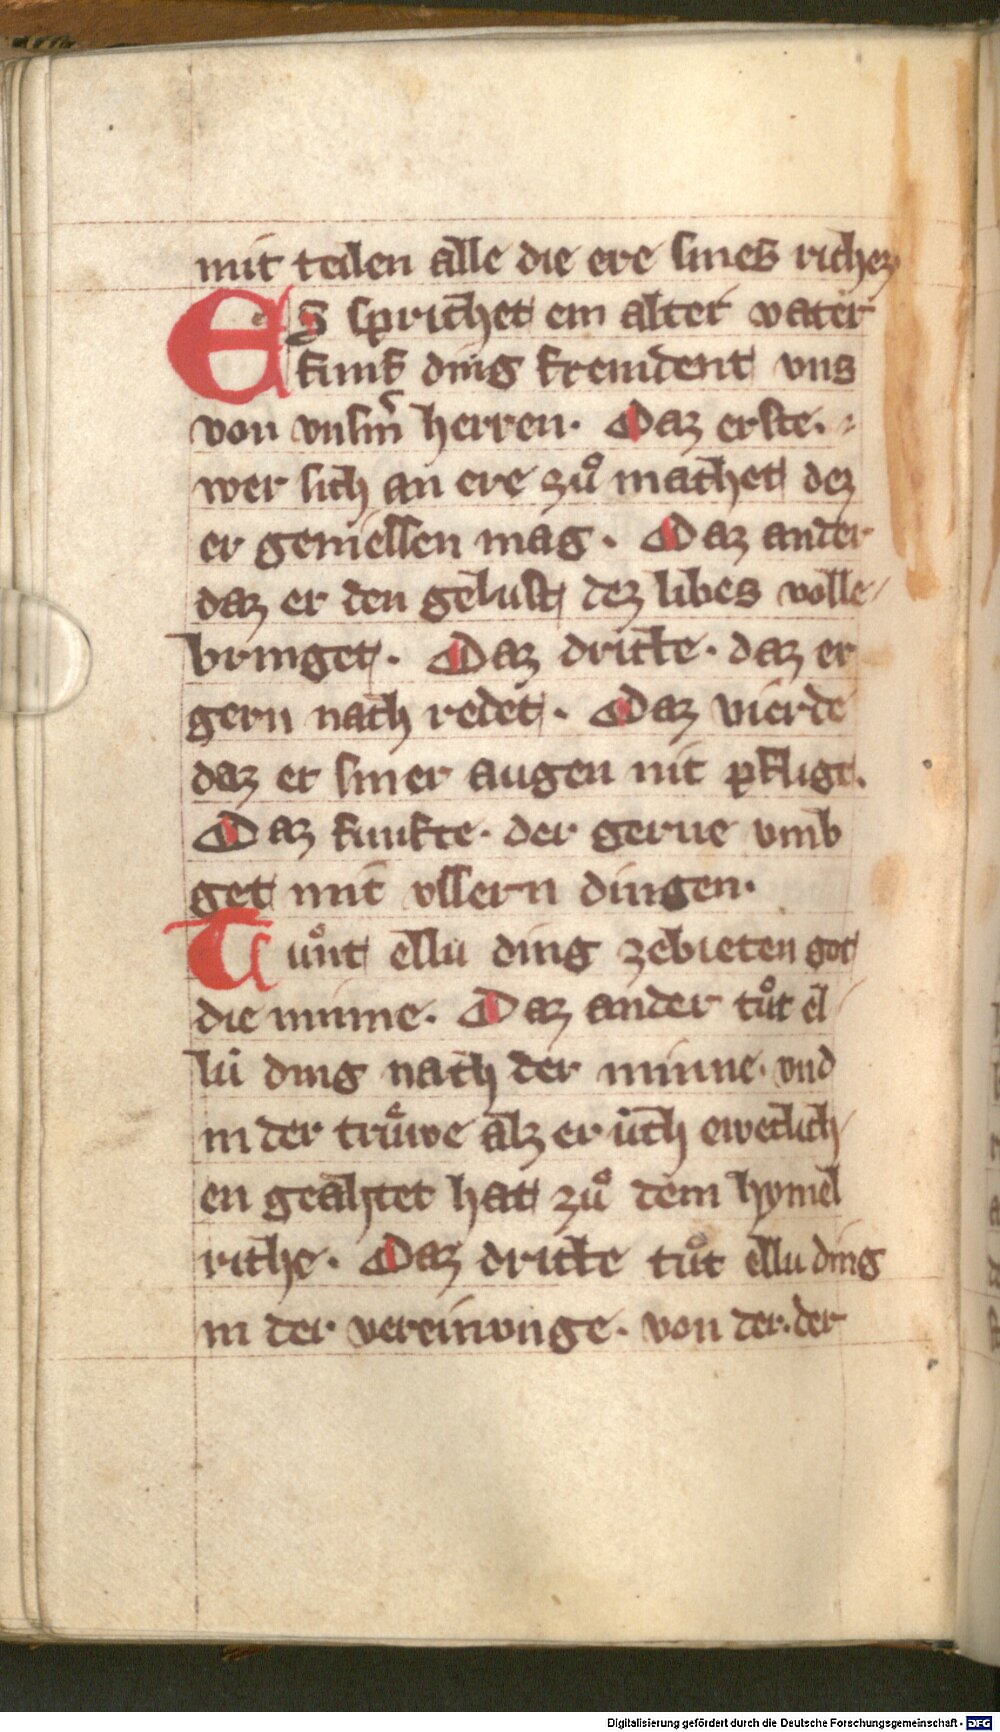 mit teilen alle die ere sines riches
Es sprichet ein alter vater
funf ding fremdent vns
von vnsm̄ herren. Daz erste.
wer sich an ere zuͦ machet dez
er geniessen mag. Daz ander
daz er den gelust dez libes volle/
bringet. Daz dritte. daz er
gern nach redet. Daz vierde
daz er siner augen nit pfligt.
Daz funfte. der gerne vmb
get mit vssern dingen.
Tuͦnt ellu ding zebieten got
die minne. Daz ander tuͦt el/
lu ding nach der minne. vnd
in der truͤwe alz er uͥch eweclich/
en geahtet hat zuͦ dem hymel
riche. Daz dritte tuͦt ellu ding
in der vereinvnge. von der. der
Digitalisierung gefördert durch die Deutsche Forschungsgemeinschaft - DFG